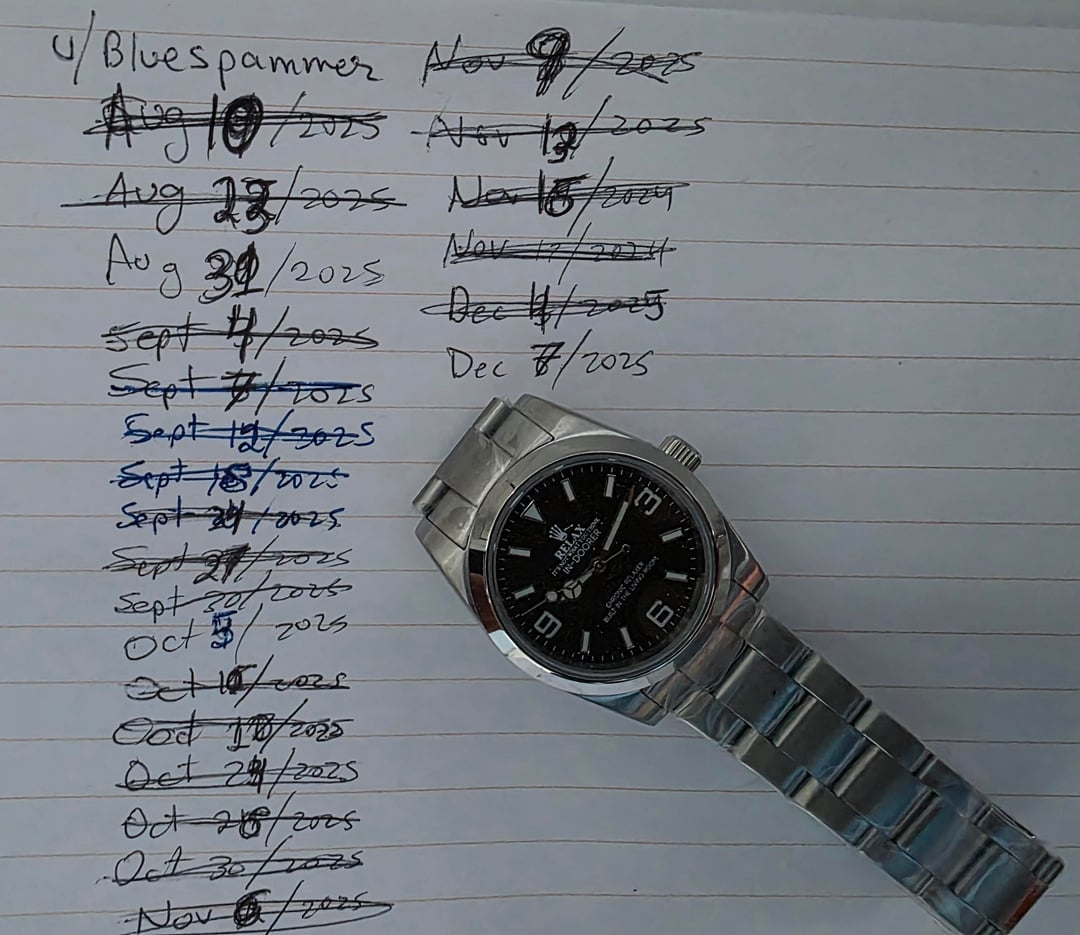 u/Bluespammer
Aug 10/2025
Aug 23/2025
Aug 31/2025
Sept 4/2025
Sept 7/2025
Sept 12/2025
Sept 18/2025
Sept 24/2025
Sept 27/2025
Sept 30/2025
Oct 5/2025
Oct /2025
Oct /2025
Oct /2025
Oct /2025
Oct 30/2025
Nov /2025
Nov 9/2025
Nov 13/2025
Nov 15/2024
Nov 17/2024
Dec 4/2025
Dec 7/2025
3
6
9
RELAX
IN-DOORER
CHRONIC RELAXER
BUILT IN THE LIVING ROOM